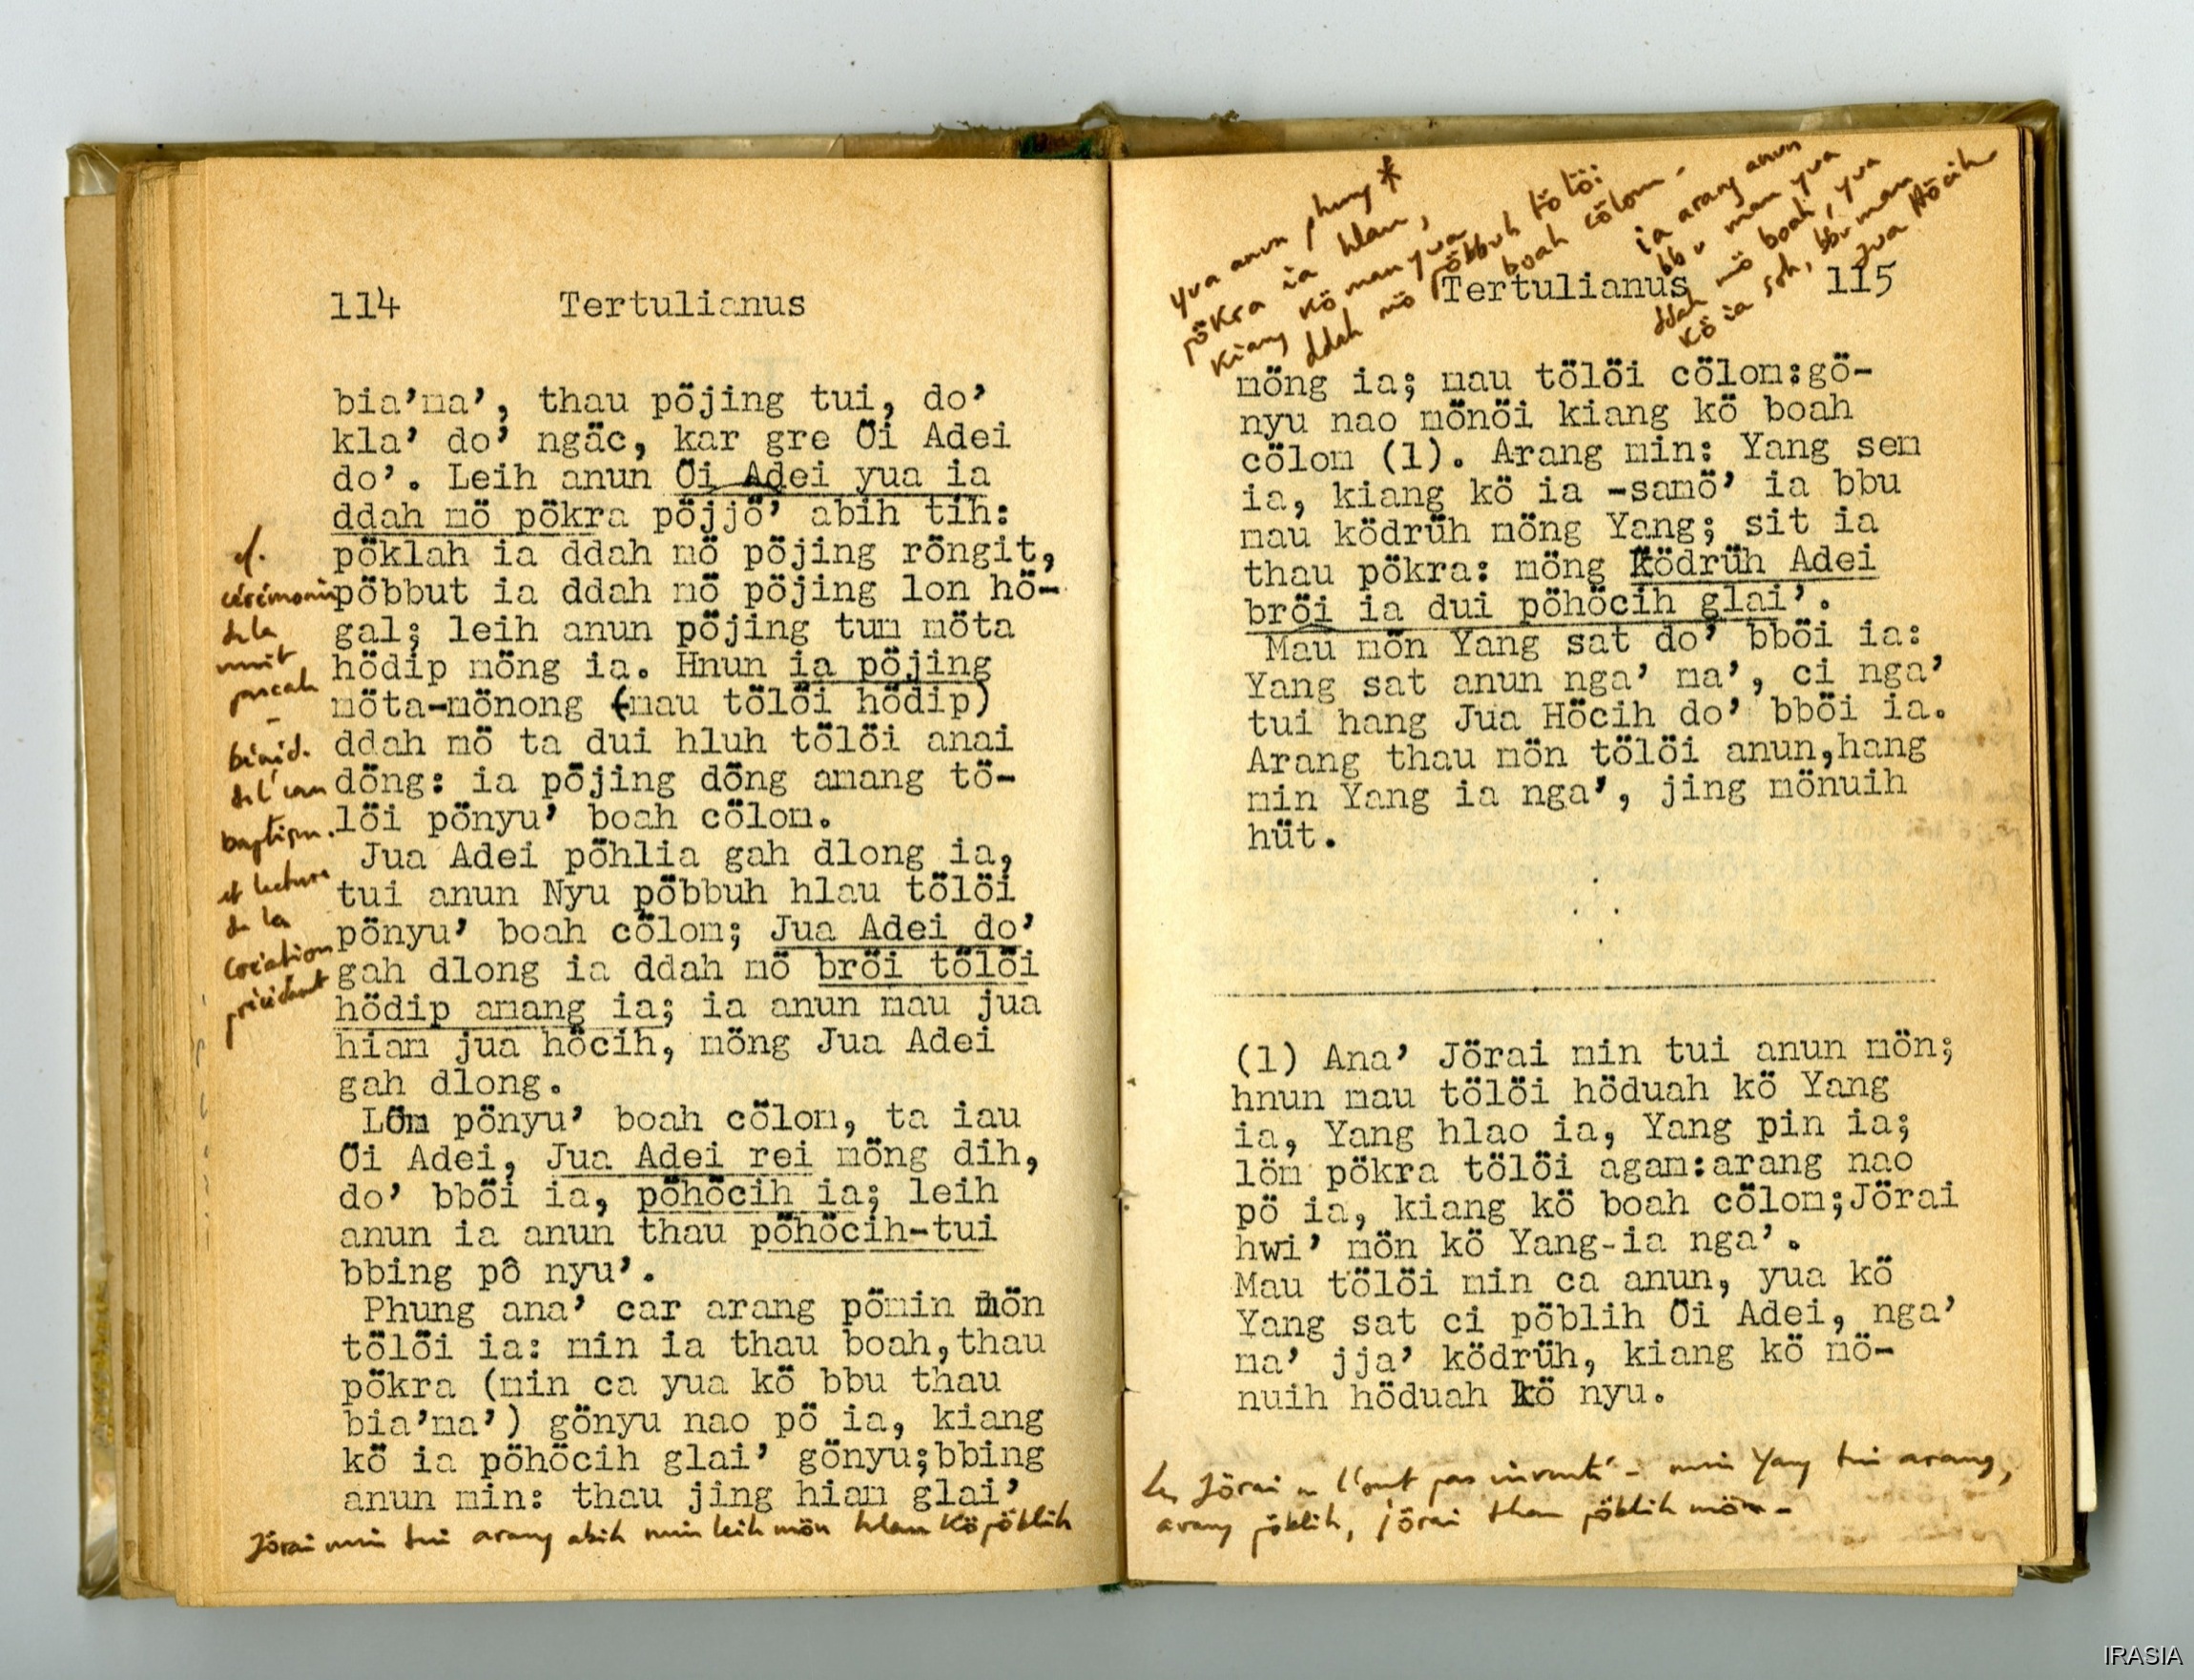 114 Tertulianus
bia’ma’, thau pöjing tui, do’
kla’ do’ ngăc, kar gre Öi Adei
do’. Leih anun Öi Adei yua ia
ddah mö pökra pöjjö’ abih tih:
pöklah ia ddah mö pöjing röngit,
pöbbut ia ddah mö pöjing lon hö-
gal; leih anun pöjing tum möta
hödip möng ia. Hnun ia pöjing
möta-mönong (mau tölöi hödip)
ddah mö ta dui hluh tölöi anai
döng: ia pöjing döng amang tö-
löi pönyu’ boah cölom.
Jua Adei pöhlia gah dlong ia,
tui anun Nyu pöbbuh hlau tölöi
pönyu’ boah cölom; Jua Adei do’
gah dlong ia ddah mö bröi tölöi
hödip amang ia; ia anun mau jua
hiam jua höcih, möng Jua Adei
gah dlong.
Löm pönyu’ boah cölom, ta iau
Öi Adei, Jua Adei rei möng dih,
do’ bböi ia, pöhöcih ia; leih
anun ia anun thau pöhöcih-tui
bbing pô nyu’.
Phung ana’ car arang pömin mön
tölöi ia: min ia thau boah,thau
pökra (min ca yua kö bbu thau
bia’ma’) gönyu nao pö ia, kiang
kö ia pöhöcih glai’ gönyu;bbing
anun min: thau jing hiam glai’
Jörai min tui arang abih min leih mön hlau kö pöblih
cf.
cérémonie
de la
nuit
pascale
-
bénéd.
de l'eau
baptism.
et lecture
de la
Création
précédant
yua anun phung *
pökra ia hlau,
kiang kö man yua
ddah mö pöbbuh tölöi
boah cölom -
ia arang anun
bbu man yua
ddah mö boah, yua
kö ia soh, bbu mau
Jua Höcih
Tertulianus 115
möng ia; mau tölöi cölom:gö-
nyu nao mönöi kiang kö boah
cölom (1). Arang min: Yang sem
ia, kiang kö ia -samö’ ia bbu
mau ködrüh möng Yang; sit ia
thau pökra: möng Ködrüh Adei
bröi ia dui pöhöcih glai’.
Mau mön Yang sat do’ bböi ia:
Yang sat anun nga’ ma’, ci nga’
tui hang Jua Höcih do’ bböi ia.
Arang thau mön tölöi anun,hang
min Yang ia nga’, jing mönuih
hüt.
(1) Ana’ Jörai min tui anun mön;
hnun mau tölöi höduah kö Yang
ia, Yang hlao ia, Yang pin ia;
löm pökra tölöi agam:arang nao
pö ia, kiang kö boah cölom;Jörai
hwi’ mön kö Yang-ia nga’.
Mau tölöi min ca anun, yua kö
Yang sat ci pöblih Öi Adei, nga’
ma’ jja’ ködrüh, kiang kö mö-
nuih höduah kö nyu.
Les Jörai ne l'ont pas inventé - min Yang tui arang,
arang pöblih, Jörai thau pöblih mön -